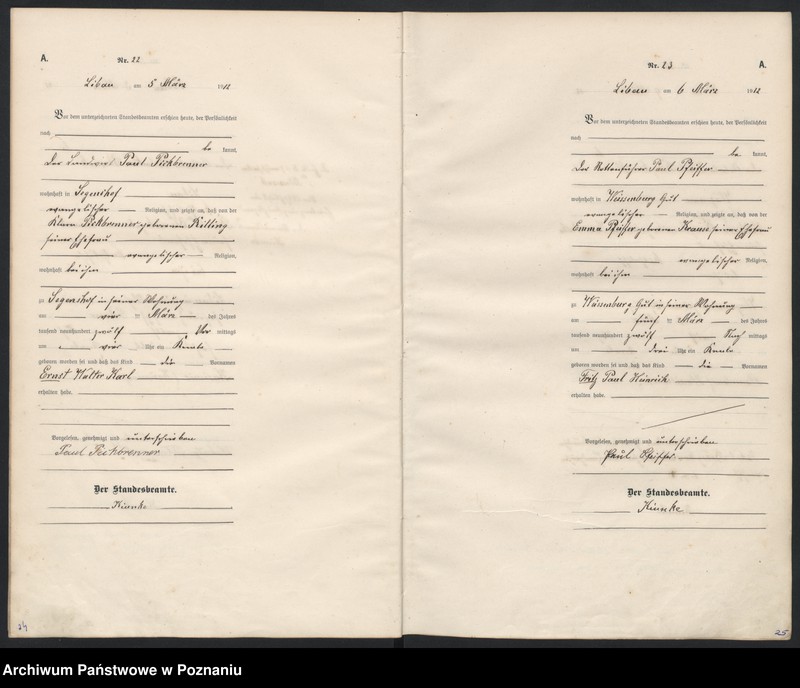 A.
Nr. 22
Libau am 5 März 1912
Vor dem unterzeichneten Standesbeamten erschien heute, der Persönlichkeit
nach
be kannt,
der Landwirt Paul Pickbrenner
wohnhaft in Segenshof
evangelischer Religion, und zeigte an, daß von der
Klara Pickbrenner geborenen Killing
seiner Ehefrau
evangelischer Religion,
wohnhaft bei ihm
zu Segenshof in seiner Wohnung
am vier ten März des Jahres
tausend neunhundert zwölf Vor mittags
um vier Uhr ein Knabe
geboren worden sei und daß das Kind die Vornamen
Ernst Walter Karl
erhalten habe.
Vorgelesen, genehmigt und unterschrieben
Paul Pickbrenner
Der Standesbeamte.
24
Nr. 23
A.
Libau am 6 März 1912
Vor dem unterzeichneten Standesbeamten erschien heute, der Persönlichkeit
nach
be kannt,
der Rottenführer Paul Pfeiffer
wohnhaft in Weissenburg Gut
evangelischer Religion, und zeigte an, daß von der
Emma Pfeiffer geborenen Krause seiner Ehefrau
evangelischer Religion,
wohnhaft bei ihm
zu Weissenburg Gut in seiner Wohnung
am fünf ten März des Jahres
tausend neunhundert zwölf Nach mittags
um drei Uhr ein Knabe
geboren worden sei und daß das Kind die Vornamen
Fritz Paul Heinrich
erhalten habe.
Vorgelesen, genehmigt und unterschrieben
Paul Pfeiffer
Der Standesbeamte.
25
Archiwum Państwowe w Poznaniu